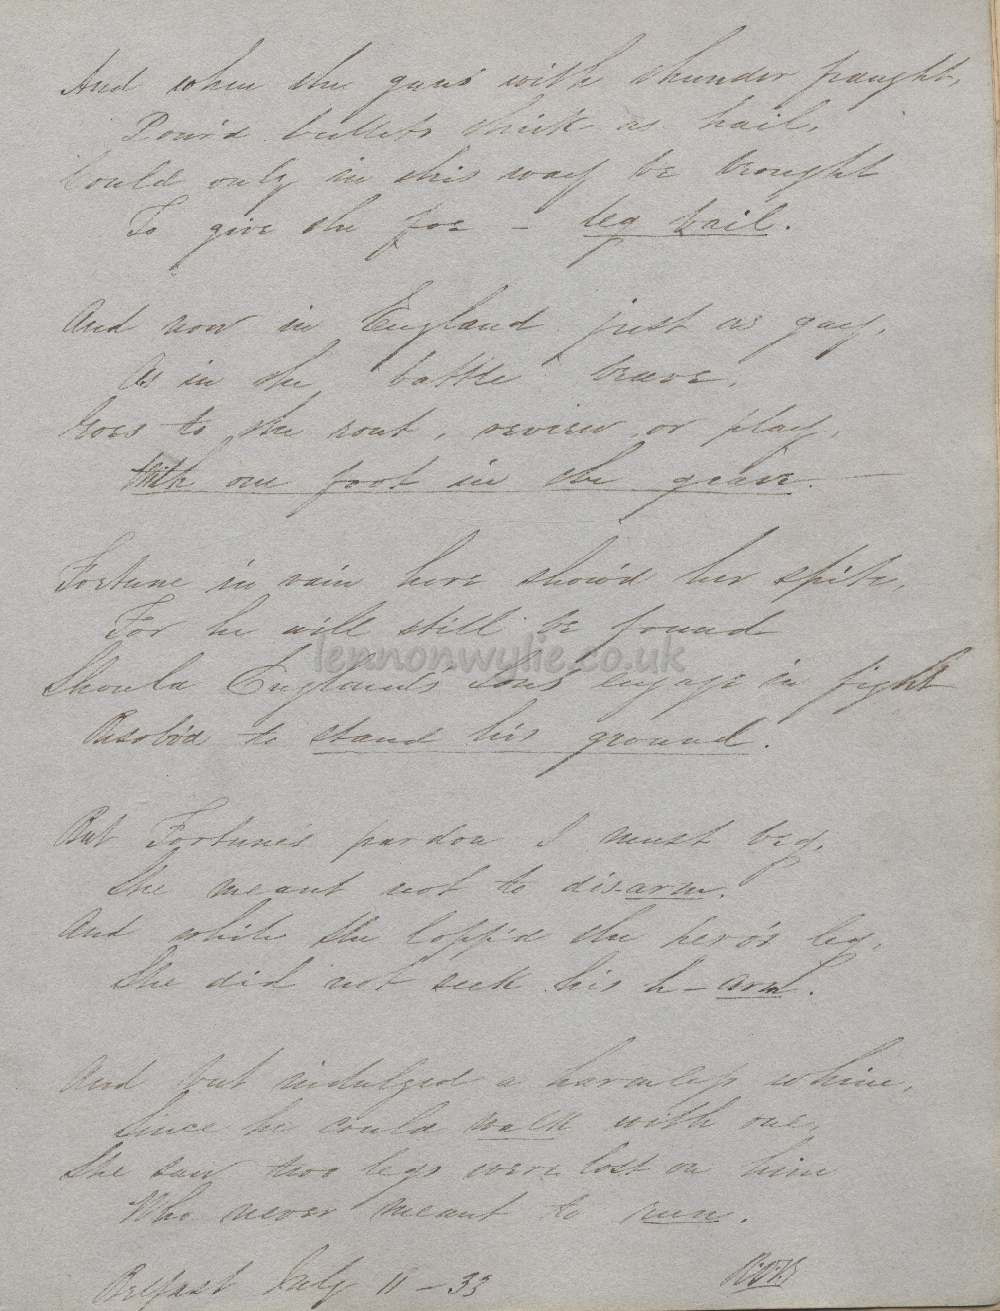 And when the guns with thunder fraught,
Pour'd bullets thick as hail,
Could only in this way be brought
To give the foe - leg bail.
And now in England just as gay,
As in the battle brave,
Goes to the rout, review, or play,
With one foot in the grave.
Fortune in vain here show'd her spite,
For he will still be found
lennonwylie.co.uk
Should England's sons engage in fight
Resolv'd to stand his ground.
But Fortune's pardon I must beg,
She meant not to dis-arm.
And while she lopp'd the hero's leg,
She did not seek his h-arm.
And but indulged a harmless whim,
Since he could walk with one,
She saw two legs were lost on him
Who never meant to run.
Belfast July 11 - 33